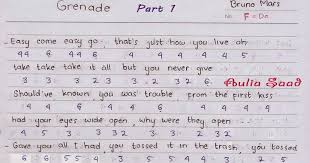 Grenade Part 1 Bruno Mars
No. F = Do
Easy come easy go, that's just how you live oh
44 6 44 6 4 4 4 4 4 5
take take take it all but you never give Aulia Saad
3 3 3 2 3 3 2 3 2 6
Should've known you was trouble from the first kiss
4 4 6 4 4 4 4 4 4 4
had your eyes wide open, why were they open
4 5 3 3 3 2 3 3 2 3 2
Gave you all I had you tossed it in the trash, you tossed
6 6 5 5 4